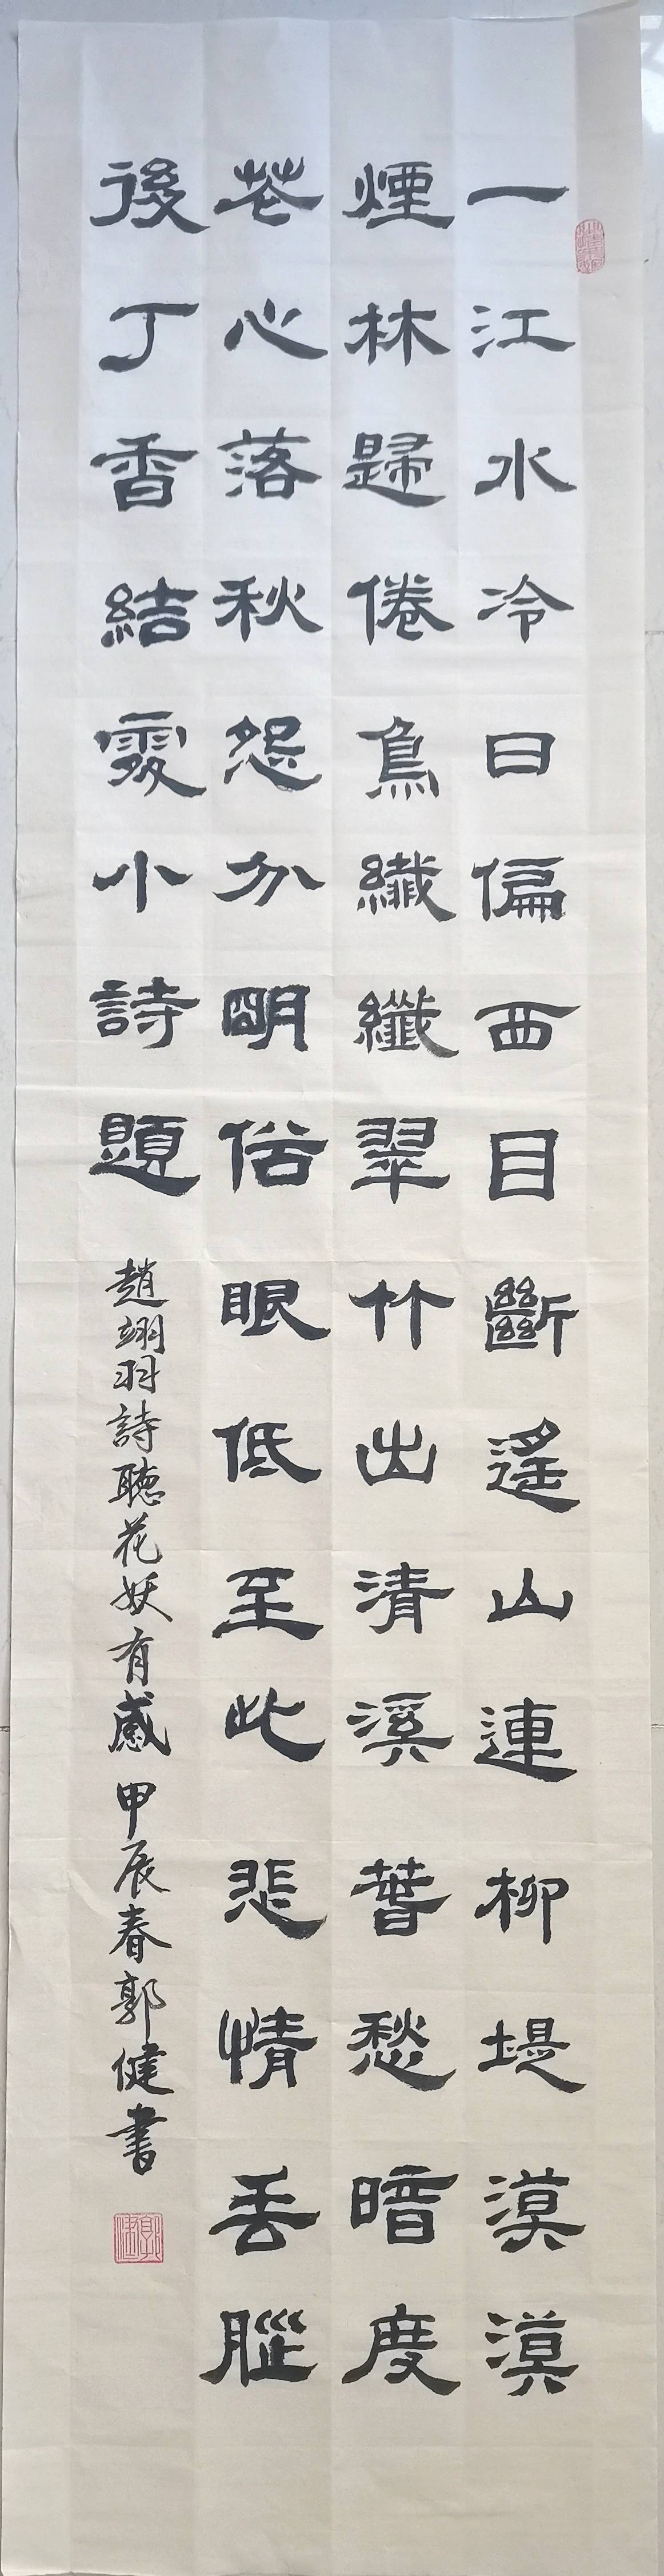 一江水冷日偏西目斷遙山連柳堤漠漠
煙林歸倦鳥纖纖翠竹出清溪萅愁暗度
花心落秋怨分明俗眼低至此悲情丟腦
後丁香結處小詩題
趙翊羽詩聽花妖有感 甲辰春郭健書
郭健